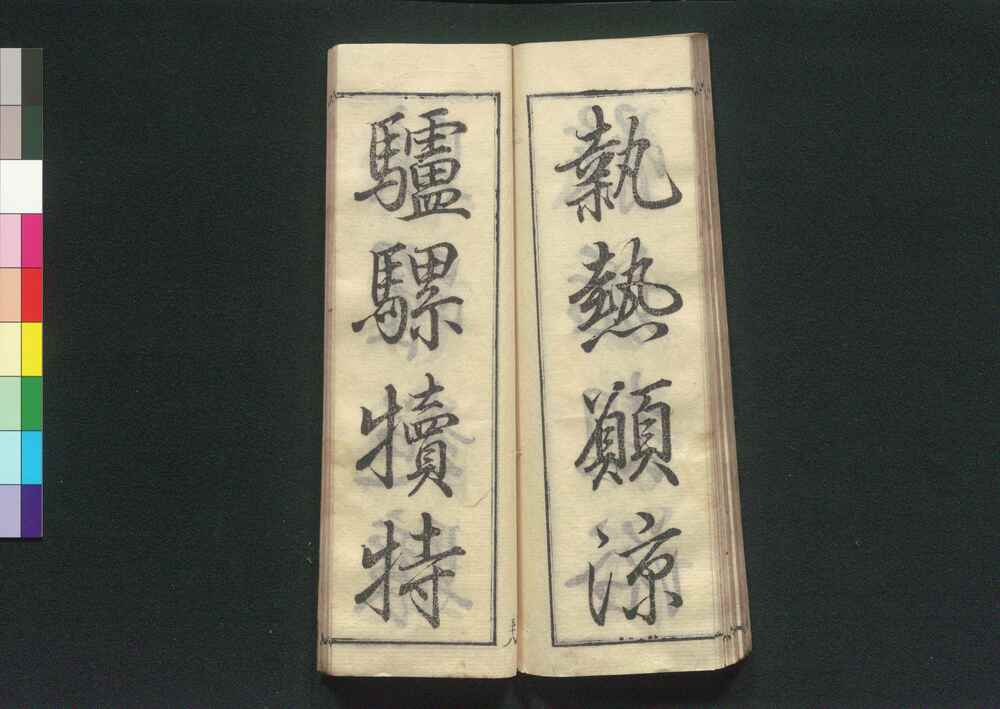 執熱願涼
驢騾犢特